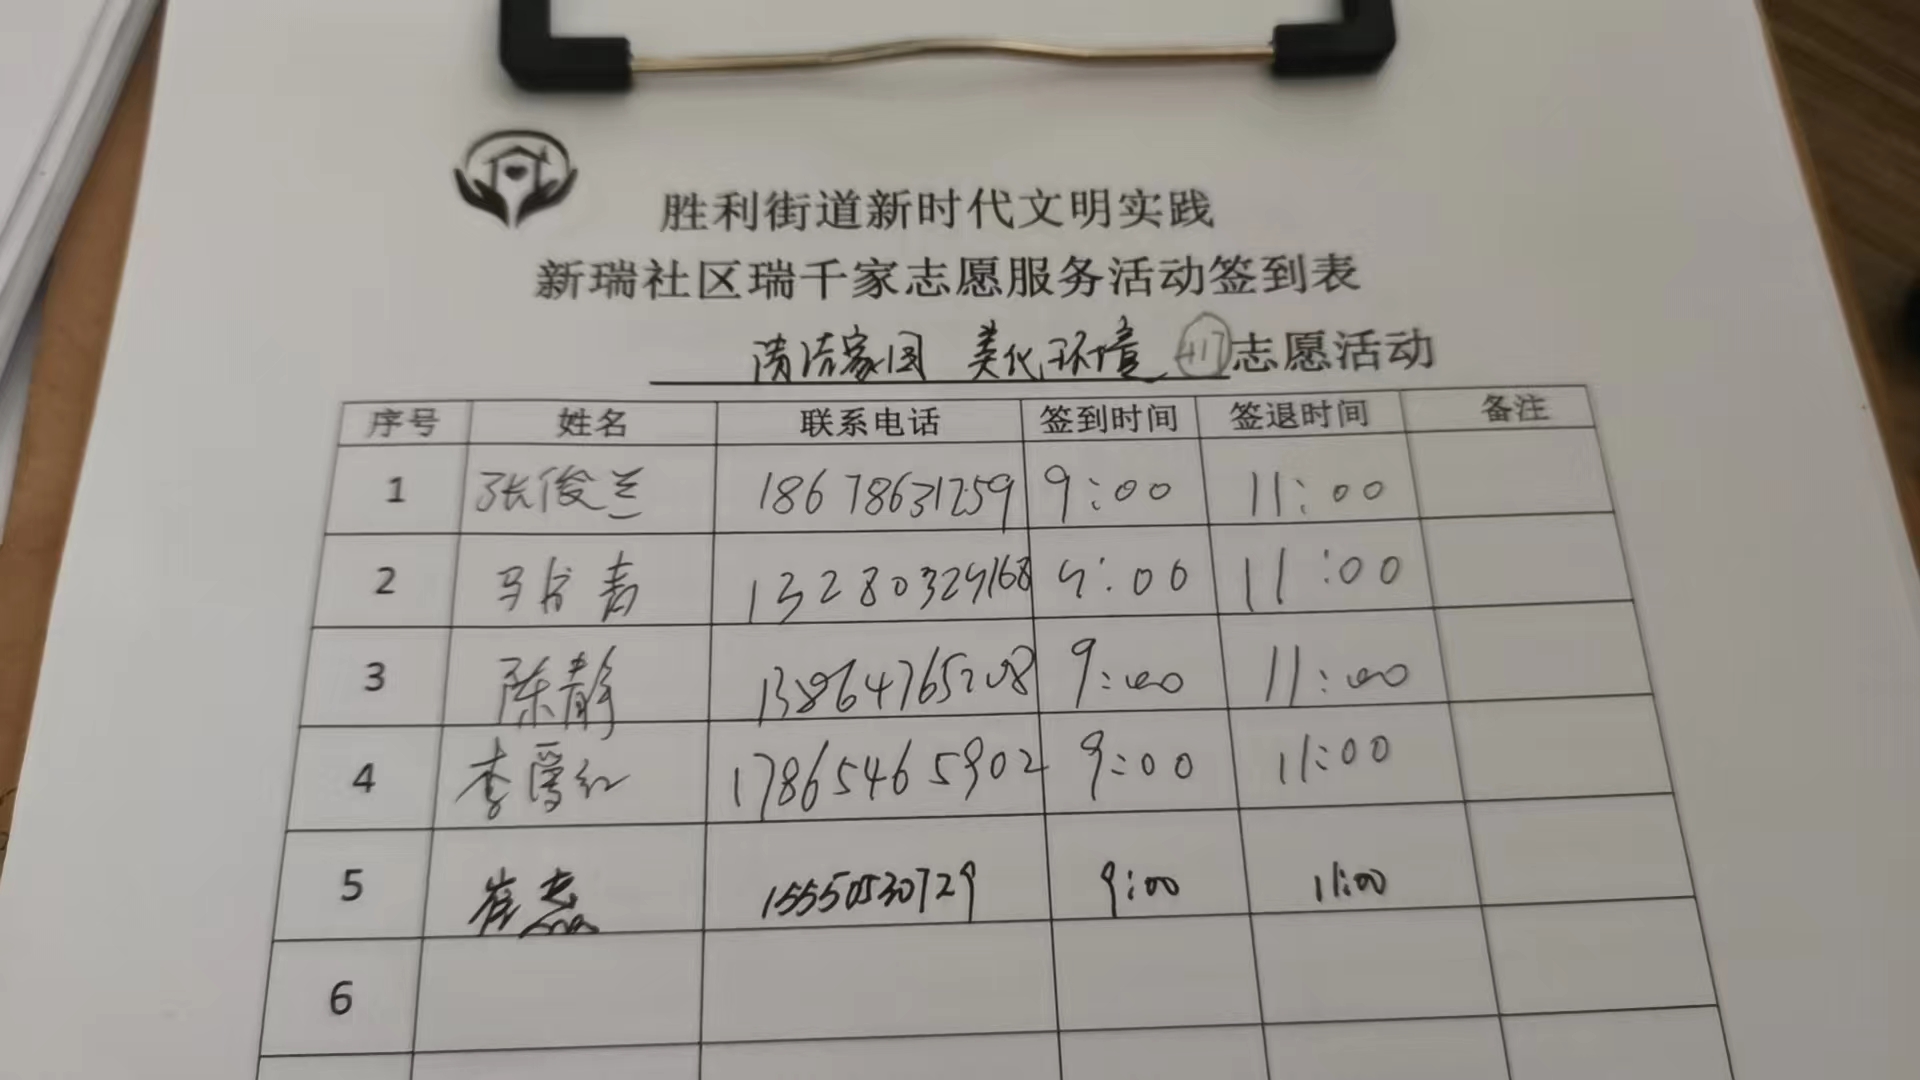 胜利街道新时代文明实践
新瑞社区瑞千家志愿服务活动签到表
清洁家园 美化环境 417 志愿活动
序号 姓名 联系电话 签到时间 签退时间 备注
1 张俊兰 18678631259 9:00 11:00
2 马 13280329168 9:00 11:00
3 陈静 13864765208 9:00 11:00
4 李爱红 17865465902 9:00 11:00
5 崔 15550530729 9:00 11:00
6